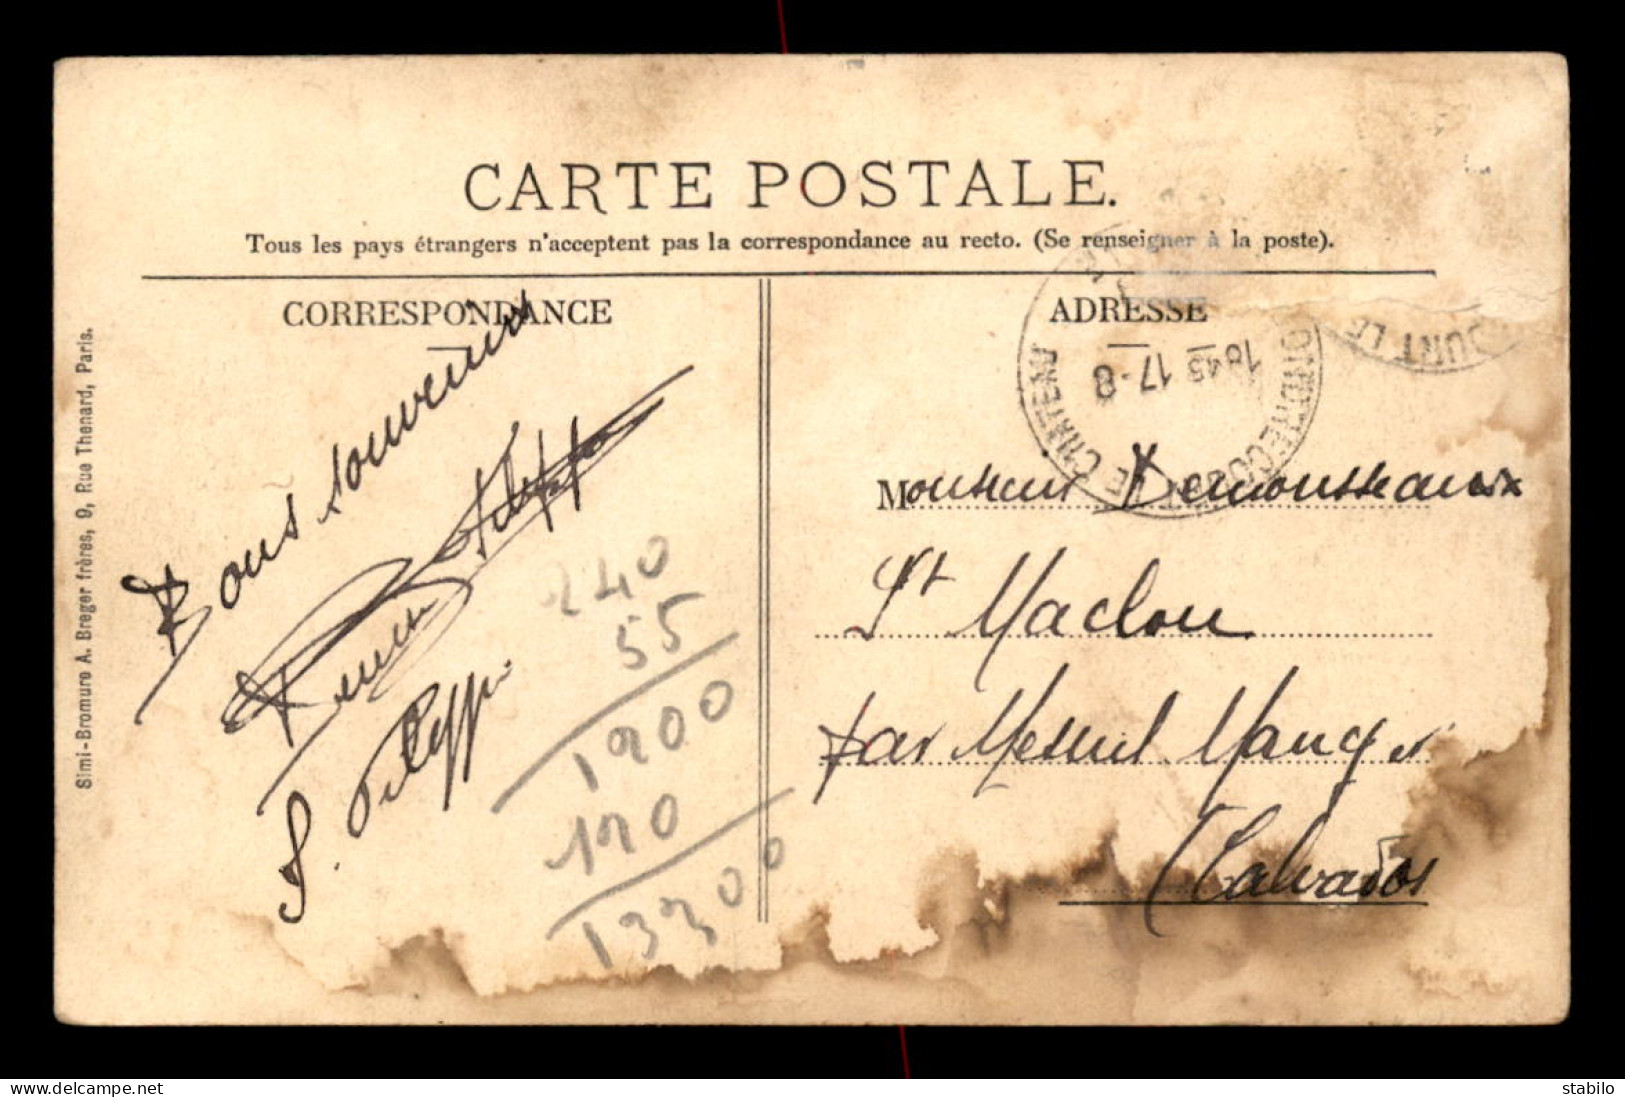 CARTE POSTALE.
Tous les pays étrangers n'acceptent pas la correspondance au recto. (Se renseigner à la poste).
CORRESPONDANCE
Bons souvenirs
Filippi
240
55
1200
120
13200
Simi-Bromure A. Breger frères, 9, Rue Thenard, Paris.
ADRESSE
LE CHATEAU
17-8
OURT LE
Monsieur Demousseaux
St Maclou
par Mesnil Mauger
Calvados
www.delcampe.net
stabilo